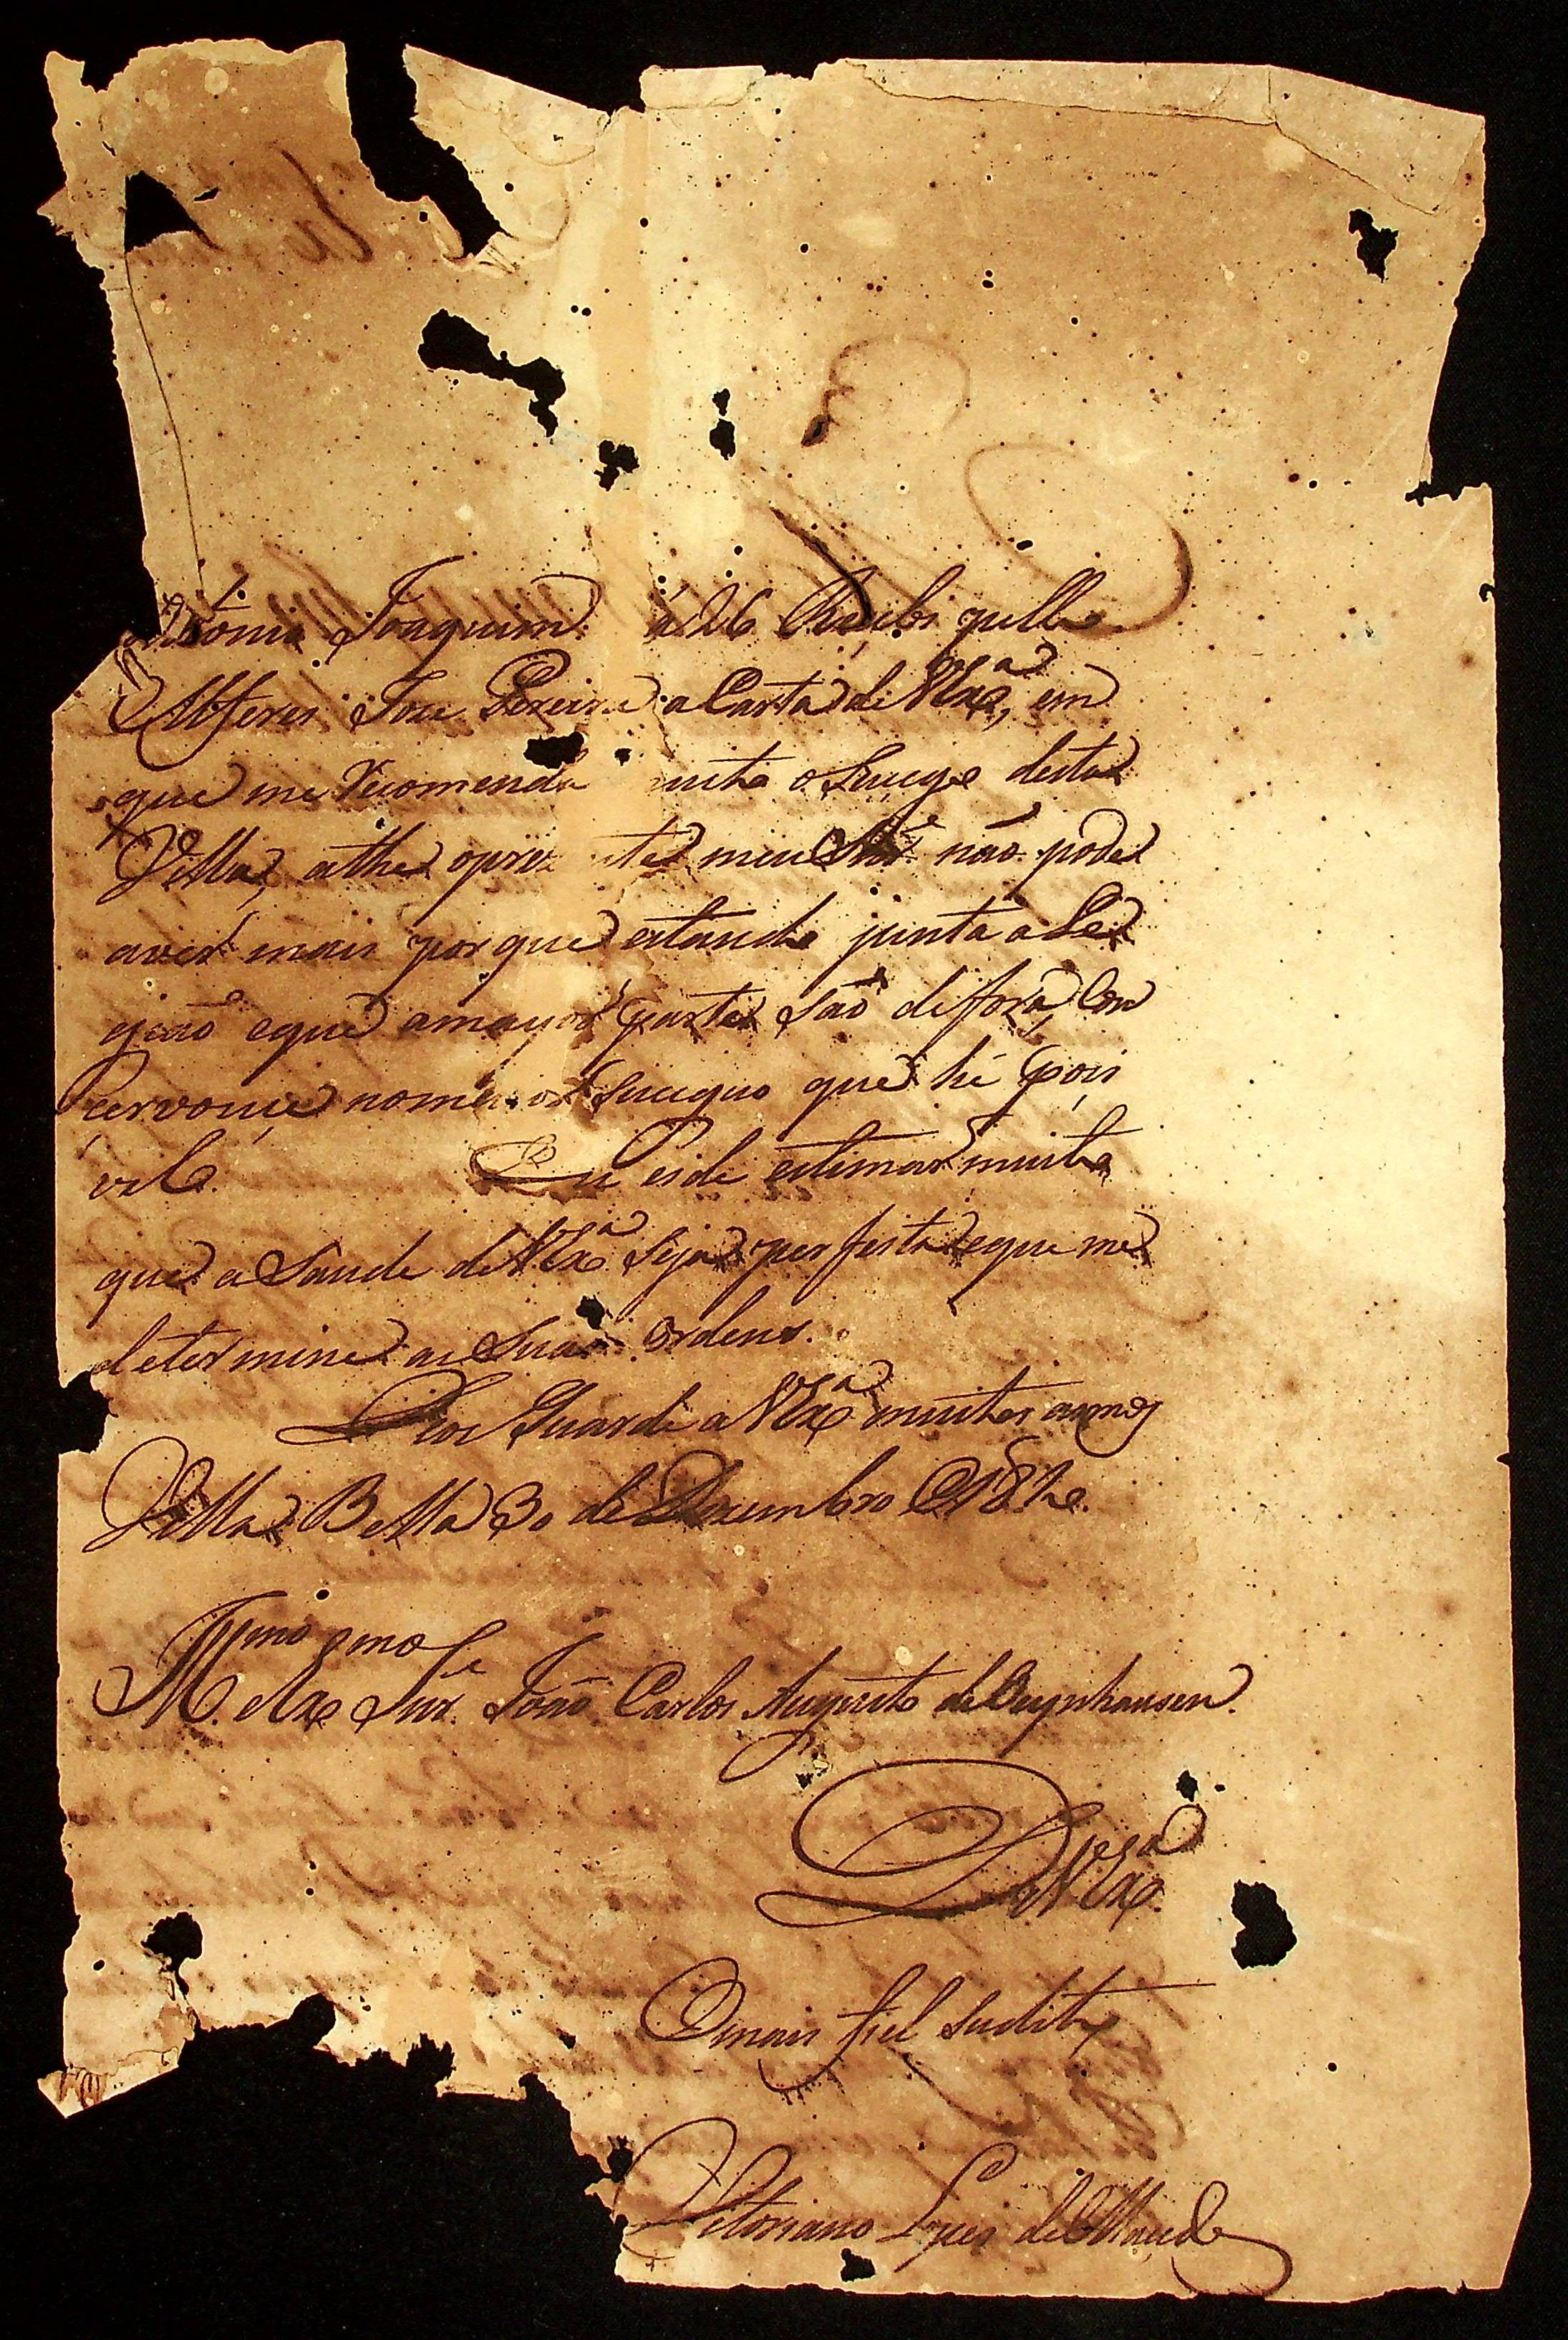 Antonio Joaquim. a 26 Recebi pello
Alferes Joze Pereira a Carta de VExa, em
que me recomenda muito o Sucego desta
Villa, athe oprezente meu Snr não pode
aver mais porque estando junta a Le
gião eque amayor parte são defora, Con
cervouçe nomayor Sucego que hé poçi
vel. Eu eide estimar muito
que a Saude de VExa Seja perfeita eque me
determine as Suas Ordens.
Deos Guarde a VExa muitos annos
Villa Bella 30 de Dezembro de 1812.
Illmo eExmo Snr. João Carlos Augusto de Oeynhausen.
De VExa.
Omais fiel Sudito
Vitoriano Lopes de Macedo